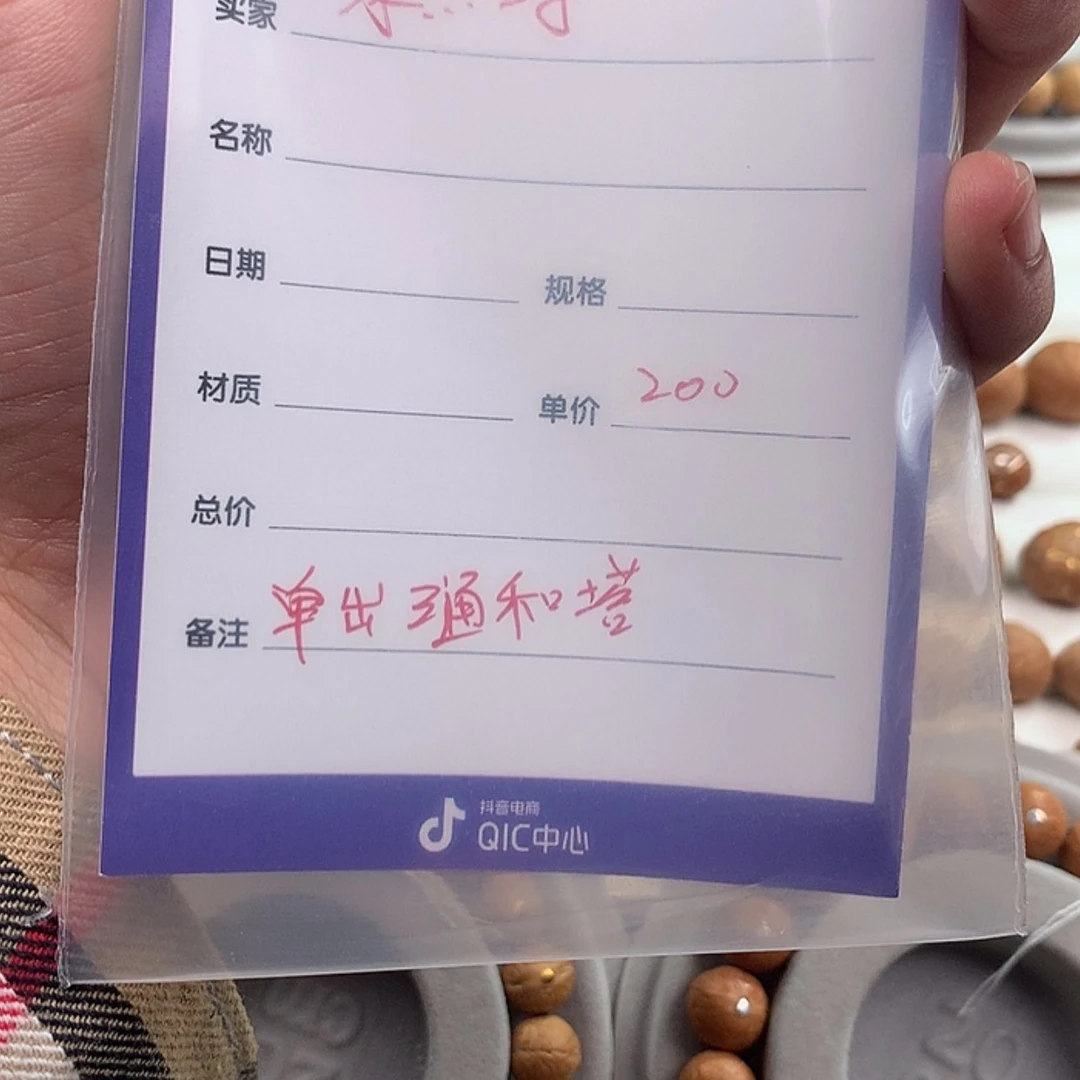 买家
名称
日期 规格
材质 单价 200
总价
备注 单出 三通和塔
抖音电商
QIC中心
20